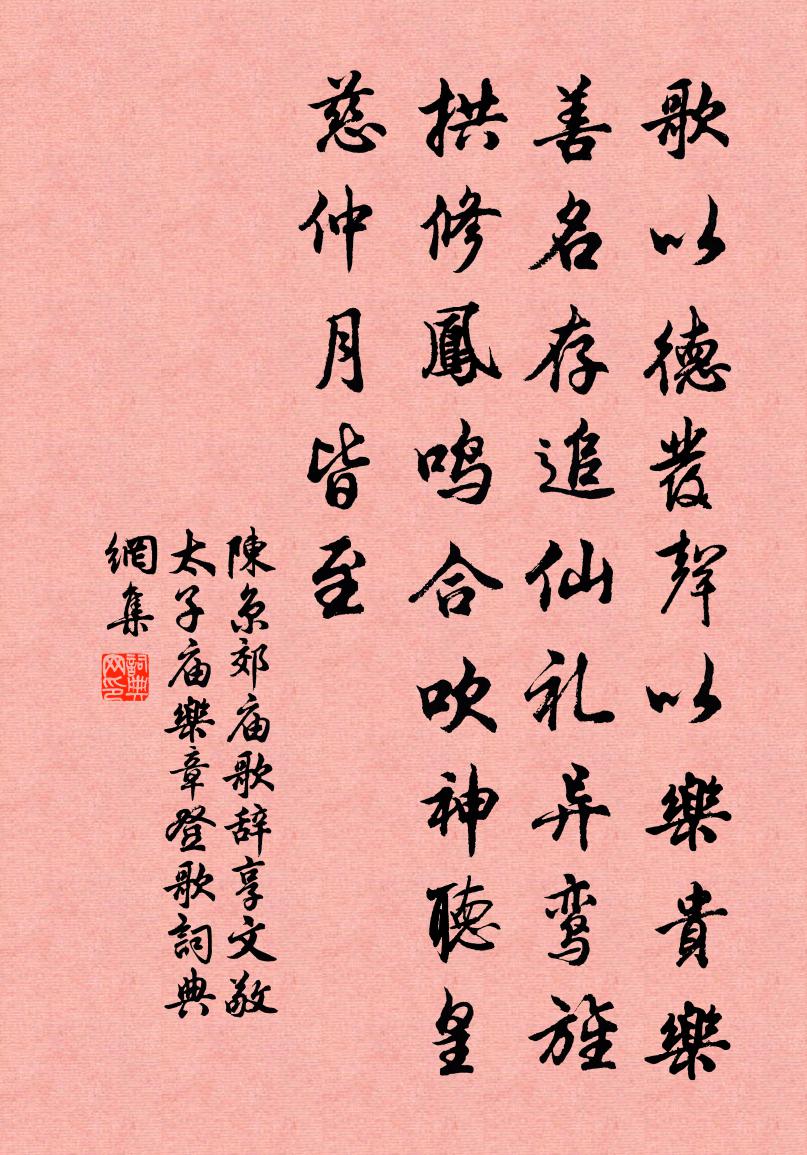 歌以德發聲以樂貴樂
善名存追仙礼异鸾旌
拱修鳳鸣合吹神聽皇
慈仲月皆至
陳京郊庙歌辞享文敬
太子庙樂章登歌詞典
網集
詞典网印